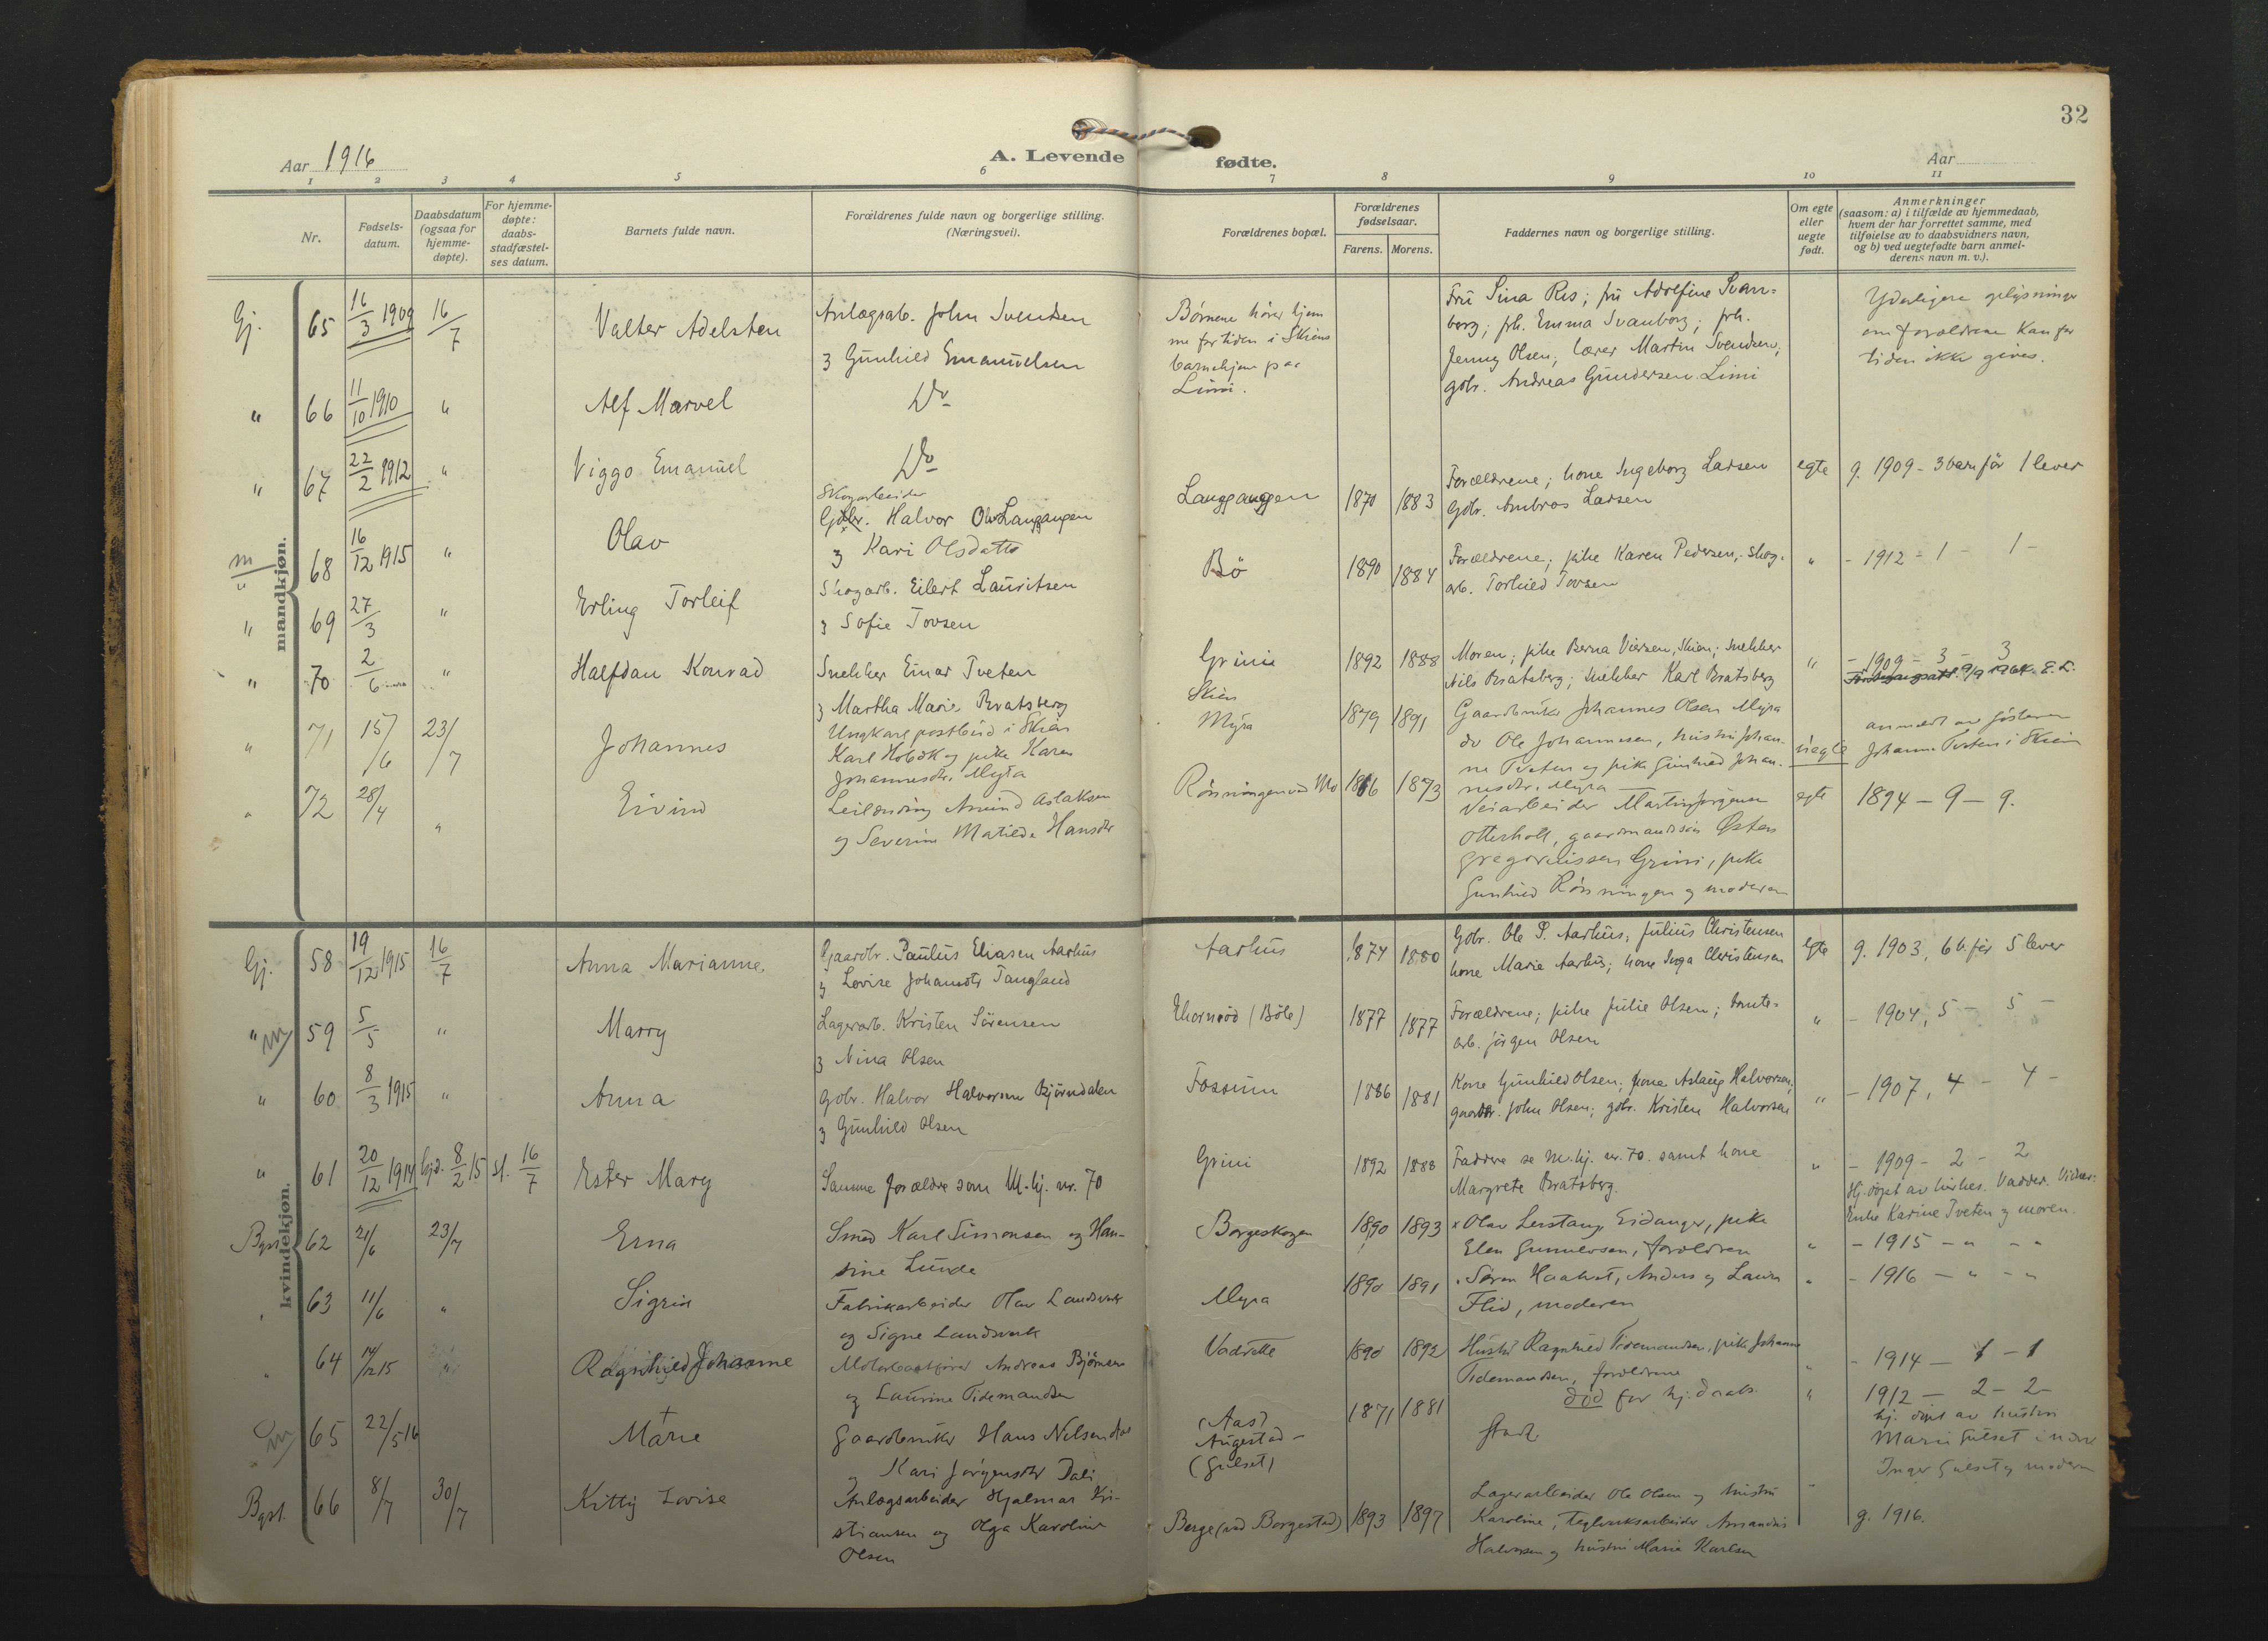 32
Aar 1916
A. Levende fødte.
Aar
1 2 3 4 5 6 7 8 9 10 11
Nr.
Fødsels-
datum.
Daabsdatum
(ogsaa for
hjemme-
døpte).
For hjemme-
døpte:
daabs-
stadfæstel-
ses datum.
Barnets fulde navn.
Forældrenes fulde navn og borgerlige stilling.
(Næringsvei).
Forældrenes bopæl.
Forældrenes
fødselsaar.
Farens. Morens.
Faddernes navn og borgerlige stilling.
Om egte
eller
uegte
født.
Anmerkninger
(saasom: a) i tilfælde av hjemmedaab,
hvem der har forrettet samme, med
tilføielse av to daabsvidners navn,
og b) ved uegtefødte barn anmel-
derens navn m. v.).
mandkjøn.
Gj. 65 16/3 1909 16/7 Valter Adelsten
Anlægsab. John Svendsen
og Gunhild Emanuelsen
Børnene hører hjem
me for tiden i Skiens
barnehjem paa
Limi.
Fru Sina Ris; fru Adolfine Svan-
borg; frk. Emma Svanborg; frk.
Jenny Olsen; lærer Martin Svendsen;
gbr. Andreas Gundersen Limi
Yderligere oplysninger
om forældrene kan for
tiden ikke gives.
" 66 11/10 1910 " Alf Marvel Do
" 67 22/2 1912 " Viggo Emanuel Do
m " 68 16/12 1915 " Olav
Skogarbeider
Gdbr. Halvor Olsen Langgangen
og Kari Olsdatter
Langgangen 1870 1883
Forældrene; kone Ingeborg Larsen
Gbr. Ambros Larsen
egte g. 1909 - 3 barn før 1 lever
" 69 27/3 " Erling Torleif
Skogarb. Eilert Lauritsen
og Sofie Tovsen
Bö 1890 1884
Forældrene; pike Karen Pedersen; skog-
arb. Torhild Tovsen
" - 1912 - 1 - 1 -
" 70 2/6 " Halfdan Konrad
Snekker Einar Tveten
og Martha Marie Bratsberg
Grini 1892 1888
Moren; pike Berna Viersen, Skien; snekker
Nils Bratsberg; snekker Karl Bratsberg
" - 1909 - 3 - 3
9/9 1964. E. L.
" 71 15/6 23/7 Johannes
Ungkarl postbud i Skien
Karl Hobæk og pike Karen
Johannesdtr. Myra
Skien
Myra 1879 1891
Gaardbruker Johannes Olsen Myra
do Ole Johannesen, hustru Johan-
ne Tveten og pike Gunhild Johan-
nesdtr. Myra
uegte
anmeldt av søsteren
Johanne Tveten i Skien
" 72 28/4 " Eivind
Leilending Amund Aslaksen
og Severine Matilde Hansdtr
Rønningen ved Mo 1866 1873
Veiarbeider Martin Jørgensen
Otterholt, gaardmandssøn Østen
Gregoriussen Grini, pike
Gunhild Rønningen og moderen
egte 1894 - 9 - 9.
kvindekjøn.
Gj. 58 19/12 1915 16/7 Anna Marianne.
Gaardbr. Paulus Eliasen Aarhus
og Lovise Johansdtr Tangland
Aarhus 1874 1880
Gbr. Ole P. Aarhus; Julius Christensen
kone Marie Aarhus; kone Inga Christensen
egte g. 1903, 6 b. før 5 lever
" m 59 5/5 " Marry
Lagerarb. Kristen Sörensen
og Nina Olsen
(Böle) 1877 1877
Forældrene; pike Julie Olsen; tomte-
arb. Jörgen Olsen
" - 1904, 5 - 5 -
" 60 8/3 1915 " Anna
Gbr. Halvor Halvorsen Bjørndalen
og Gunhild Olsen
Fossum 1886 1881
Kone Gunhild Olsen; kone Aslaug Halvorsen;
gaardbr. John Olsen; gbr. Kristen Halvorsen
" - 1907, 4 - 4 -
" 61 20/12 1914 hjd. 8/2 15 st. 16/7 Ester Mary
Samme forældre som M.kj. nr. 70
Grini 1892 1888
Faddere se M.kj. nr. 70. samt kone
Margrete Bratsberg.
" - 1909 - 2 - 2
Hj. døpt av Vidner:
Enke Karine Tveten og moren.
Bgst. 62 21/6 23/7 Erna
Smed Karl Simonsen og Han-
sine Lunde
Borgeskogen 1890 1893
x Olav Lerstang Eidanger, pike
Elen Gunnersen, forældrene
" - 1915 - " - "
" 63 11/6 " Sigrid
Fabrikarbeider Olav Landsverk
og Signe Landsverk
Myra 1890 1891
Søren Haatvet, Anders og Laura
Flid, moderen
" - 1916 - " - "
" 64 14/12 15 " Ragnhild Johanne
Motorbaatfører Andreas Bjørnsen
og Laurine Tidemandsen
Vadrette 1890 1892
Hustru Ragnhild Tidemandsen, pike Johanne
Tidemandsen, forældrene
" - 1914 - 1 - 1
m 65 22/5 16 + Marie
Gaardbruker Hans Nilsen Aas
og Kari Jørgensdtr Dali
(Aas)
Augestad -
(Gulset) 1871 1881
død før hj. daab.
stadf.
" 1912 - 2 - 2 -
hj. døpt av hustru
Mari Gulset
Inger Gulset og moderen
Bgst. 66 8/7 30/7 Kitty Lovise
Anlægsarbeider Hjalmar Kri-
stiansen og Olga Karoline
Olsen
Berge (ved Borgestad) 1893 1897
Lagerarbeider Ole Olsen og hustru
Karoline, Teglverksarbeider Amandus
Halvorsen og hustru Marie Karlsen
" g. 1916.